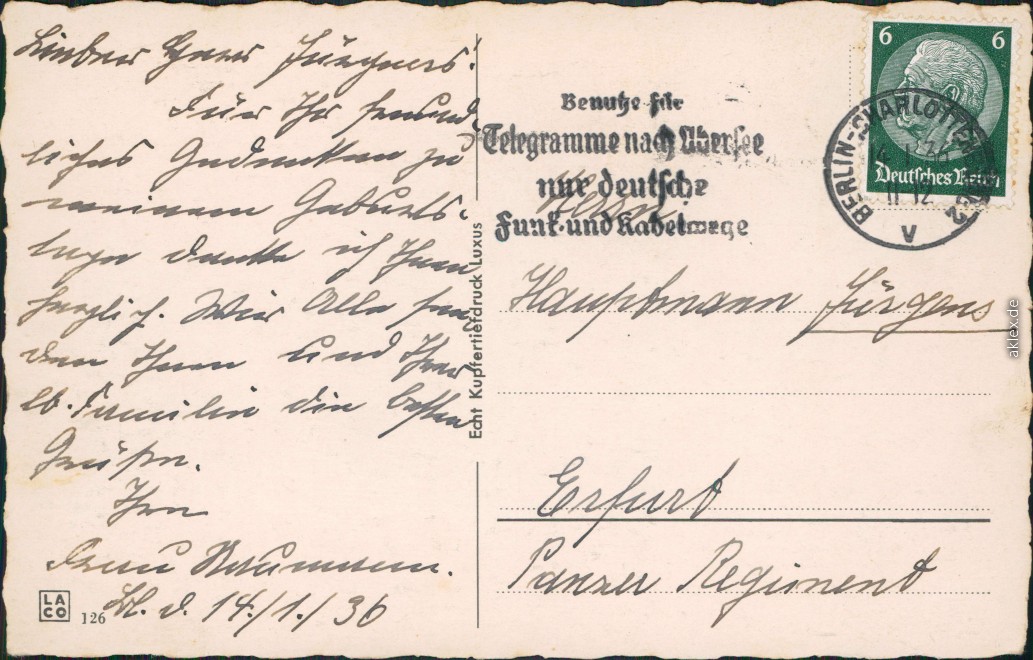 Lieber Herr Jürgens!
Für Ihr freund-
liches Gedenken zu
meinem Geburts-
tage danke ich Ihnen
herzlich. Wir Alle sen-
den Ihnen und Ihrer
lb. Familie die besten
Grüßen.
Ihre
Frau Naumann.
d. 14./1./36
LA
CO
126
Echt Kupfertiefdruck Luxus
Benutze für
Telegramme nach Übersee
nur deutsche
Funk- und Kabelwege
6 6
Deutsches Reich
BERLIN-CHARLOTTENBURG 2
11-12
V
Herrn
Hauptmann Jürgens
Erfurt
Panzer Regiment
aklex.de